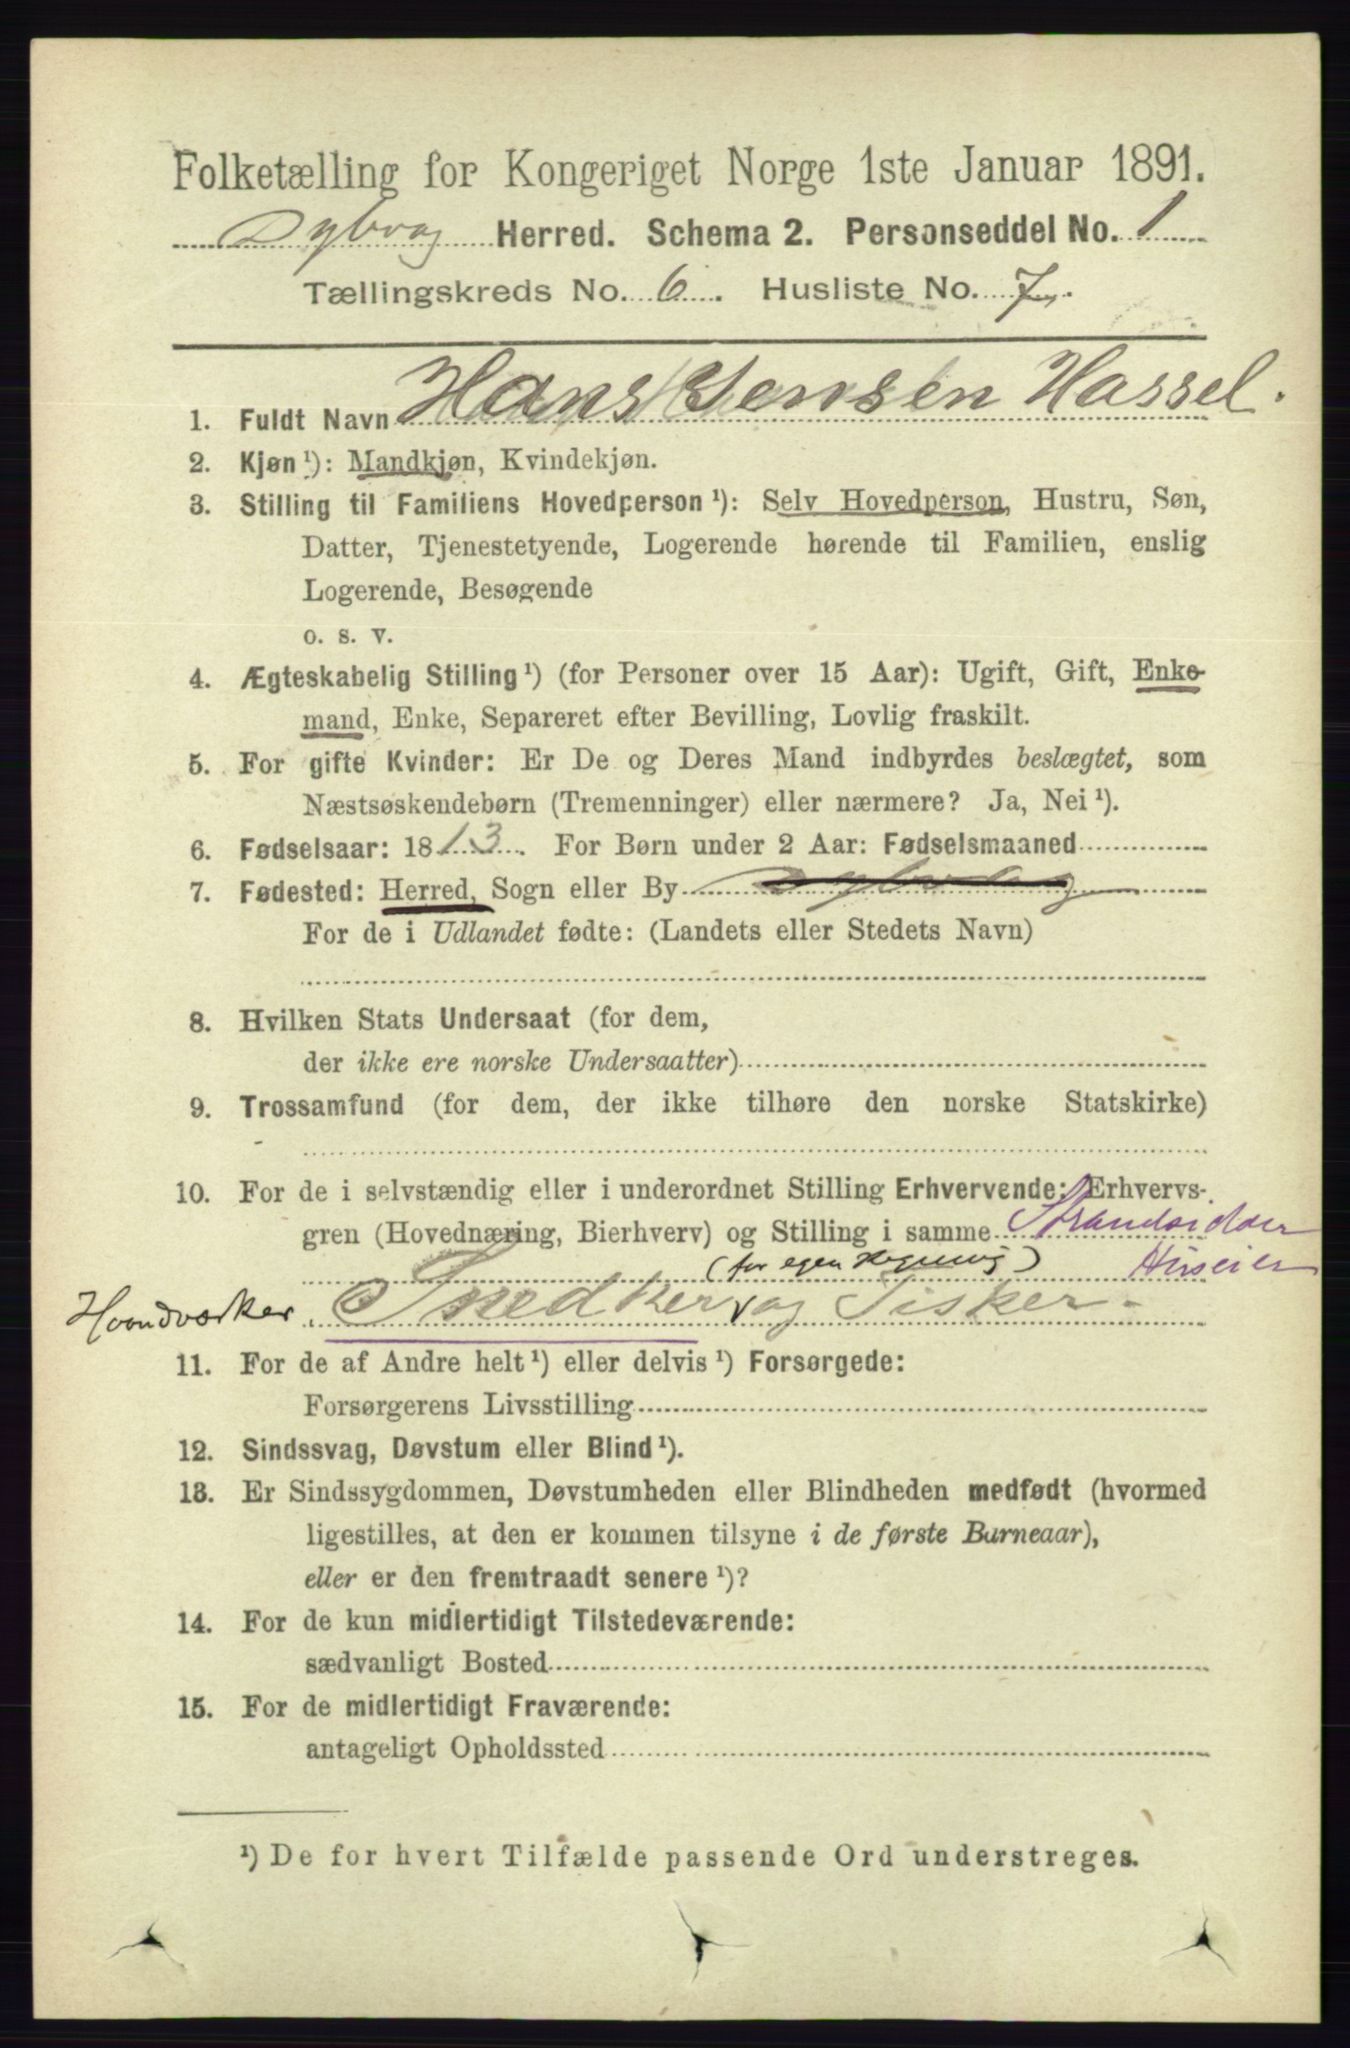 Folketælling for Kongeriget Norge 1ste Januar 1891.
Dybvag Herred. Schema 2. Personseddel No. 1
Tællingskreds No. 6. Husliste No. 7.
1. Fuldt Navn Hans Jensen Hassel.
2. Kjøn ¹): Mandkjøn, Kvindekjøn.
3. Stilling til Familiens Hovedperson ¹): Selv Hovedperson, Hustru, Søn,
Datter, Tjenestetyende, Logerende hørende til Familien, enslig
Logerende, Besøgende
o. s. v.
4. Ægteskabelig Stilling ¹) (for Personer over 15 Aar): Ugift, Gift, Enke-
mand, Enke, Separeret efter Bevilling, Lovlig fraskilt.
5. For gifte Kvinder: Er De og Deres Mand indbyrdes beslægtet, som
Næstsøskendebørn (Tremenninger) eller nærmere? Ja, Nei ¹).
6. Fødselsaar: 1813. For Børn under 2 Aar: Fødselsmaaned
7. Fødested: Herred, Sogn eller By Dybvag
For de i Udlandet fødte: (Landets eller Stedets Navn)
8. Hvilken Stats Undersaat (for dem,
der ikke ere norske Undersaatter)
9. Trossamfund (for dem, der ikke tilhøre den norske Statskirke)
10. For de i selvstændig eller i underordnet Stilling Erhvervende: Erhvervs-
gren (Hovednæring, Bierhverv) og Stilling i samme Strandsidder
(for egen Regning) Huseier
Haandværker. Snedker og Fisker -
11. For de af Andre helt ¹) eller delvis ¹) Forsørgede:
Forsørgerens Livsstilling
12. Sindssvag, Døvstum eller Blind ¹).
13. Er Sindssygdommen, Døvstumheden eller Blindheden medfødt (hvormed
ligestilles, at den er kommen tilsyne i de første Barneaar),
eller er den fremtraadt senere ¹)?
14. For de kun midlertidigt Tilstedeværende:
sædvanligt Bosted
15. For de midlertidigt Fraværende:
antageligt Opholdssted
¹) De for hvert Tilfælde passende Ord understreges.